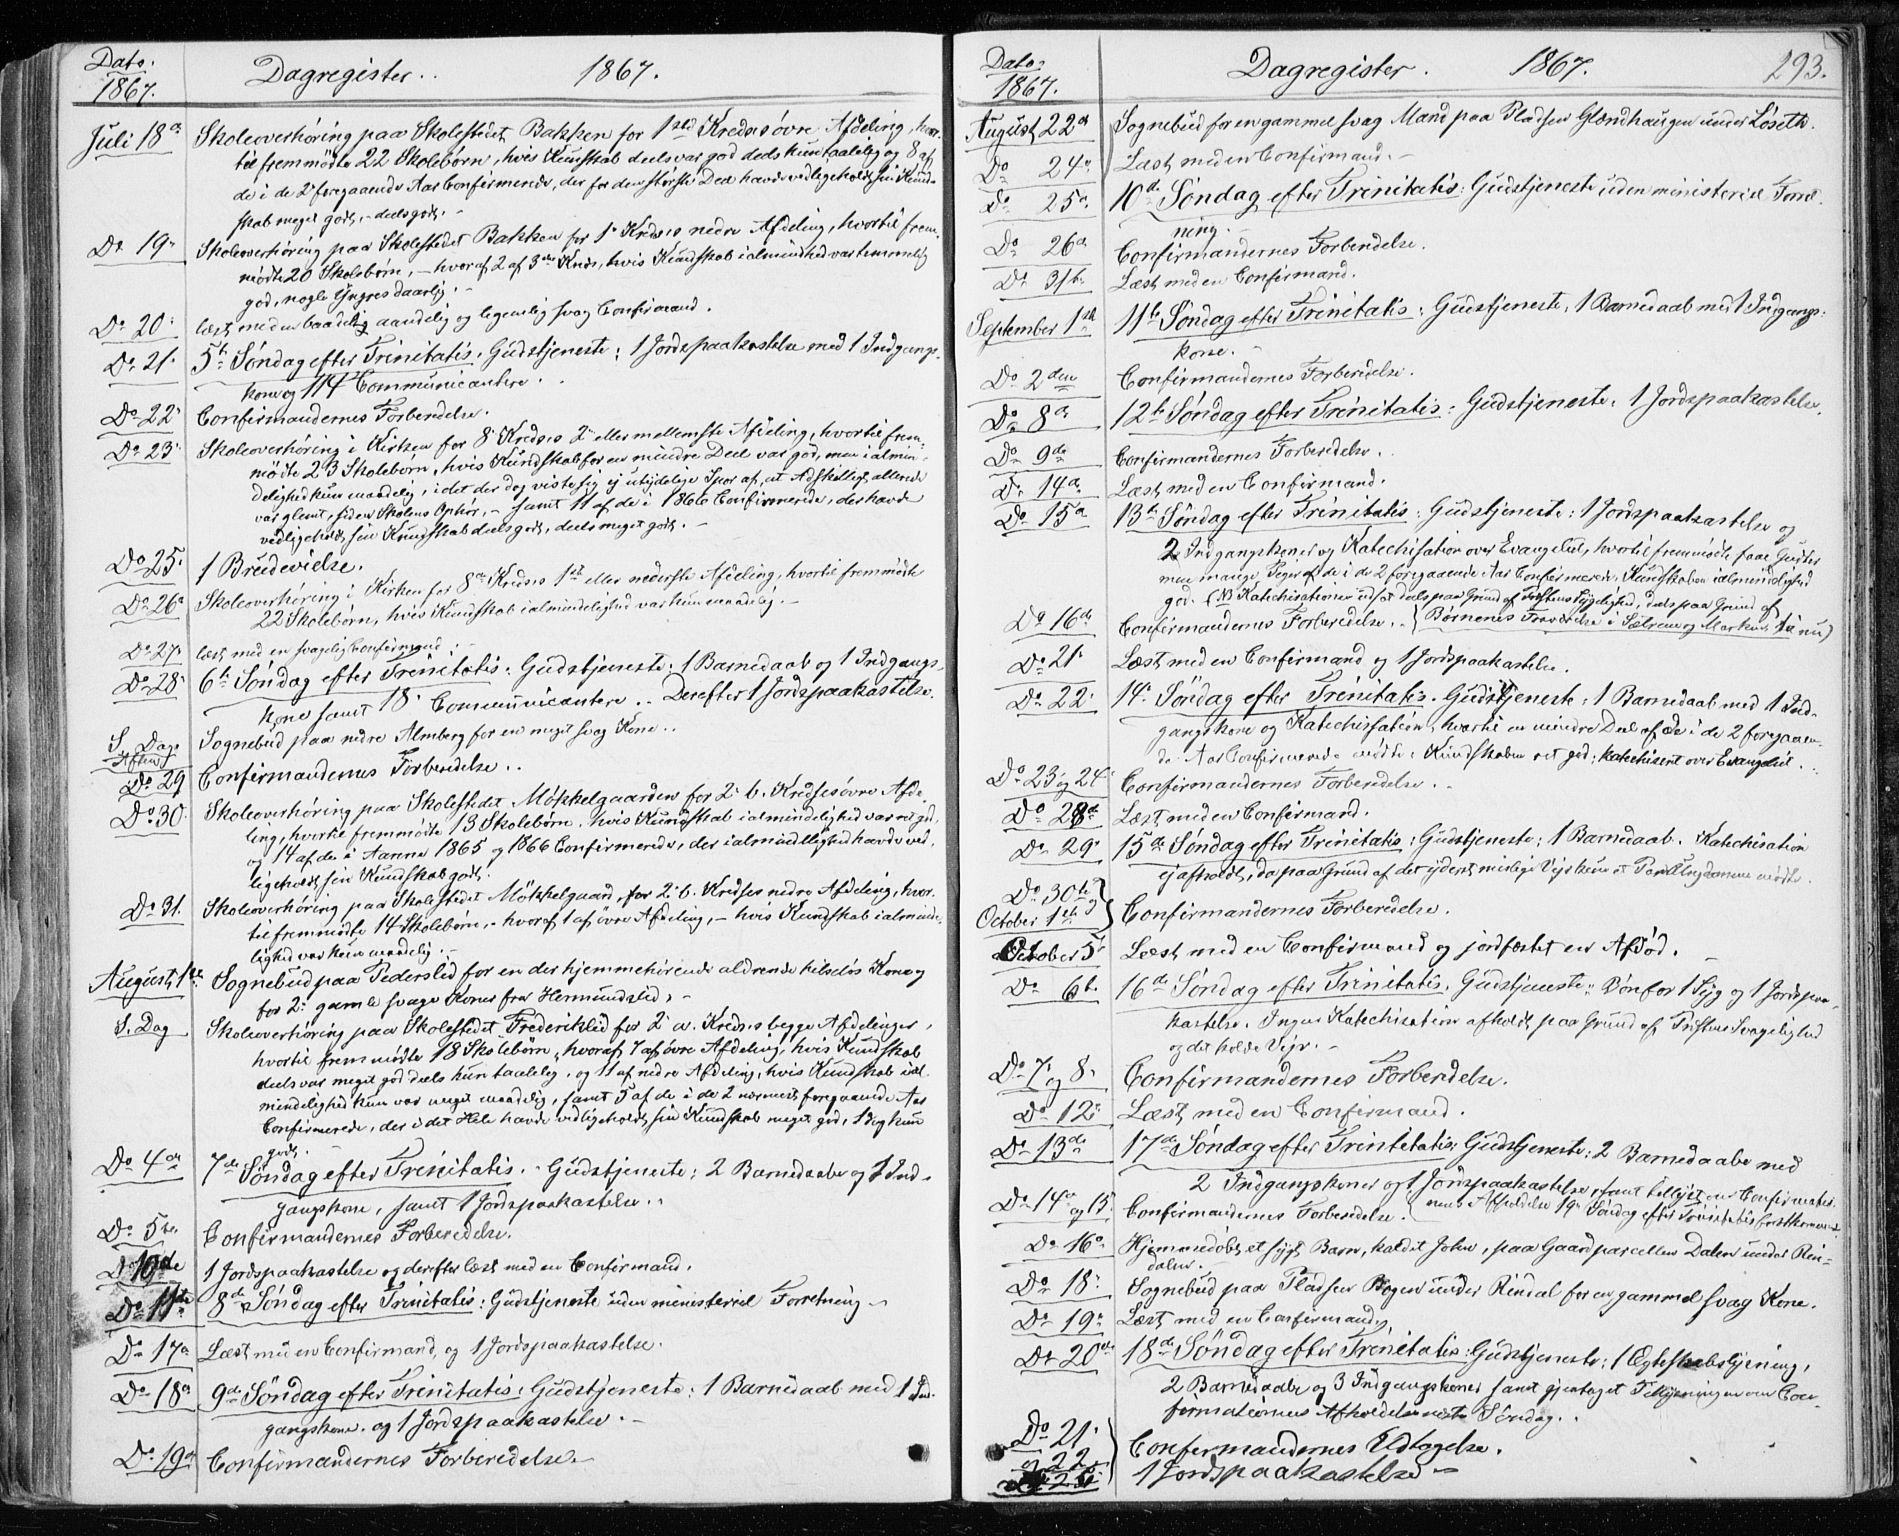 Dato. Dagregister. 1867.
1867.
Juli 18de Skoleoverhøring paa Skolestedet Bakken for 1ste Kredses øvre Afdeling, hvor-
til fremmødte 22 Skolebørn, hvis Kundskab deels var god deels kun taalelig og 8 af
de i de 2 foregaaende Aar Confirmerede, der for den største Deel havde vedligeholdt sin Kund-
skab meget godt, - deels godt. -
Do 19. Skoleoverhøring paa Skolestedet Bakken for 1. Kredses nedre Afdeling, hvortil frem-
mødte 20 Skolebørn, - hvoraf 2 af 3die Kreds, hvis Kundskab i almindhed var temmelig
god, nogle Yngres daarlig. -
Do 20. læst med en baade aandelig og legemlig svag Confirmand.
Do 21. 5te Søndag efter Trinitatis. Gudstjeneste: 1 Jordspaakastelse med 1 Indgangs-
kone og 114 Communicantere. .
Do 22. Confirmandernes Forberedelse.
Do 23. Skoleoverhøring i Kirken for 8. Kredses 2. eller mellemste Afdeling, hvortil frem-
mødte 23 Skolebørn, hvis Kundskab for en mindre Deel var god, men i almin-
delighed kun maadelig, idet der dog viste sig ej utydelige Spor af, at Adskilligt allerede
var glemt, siden Skolens Ophør, - samt 11 af de i 1866 Confirmerede, der havde
vedligeholdt sin Kundskab deels godt, deels meget godt. -
Do 25. 1 Brudevielse.
Do 26de Skoleoverhøring i Kirken for 8de Kredses 1ste eller nederste Afdeling, hvortil fremmødte
22 Skolebørn, hvis Kundskab i almindelighed var kun maadelig. -
Do 27. læst med en svagelig Confirmand.
Do 28. 6te Søndag efter Trinitatis. Gudstjeneste: 1 Barnedaab og 1 Indgangs-
kone samt 18 Communicantere . . Derefter 1 Jordspaakastelse.
S. Dags
Aften Sognebud paa nedre Almberg for en meget svag Kone . .
Do 29 Confirmandernes Forberedelse . .
Do 30. Skoleoverhøring paa Skolestedet Møkkelgaarden for 2. b. Kredses øvre Afde-
ling, hvortil fremmødte 13 Skolebørn, hvis Kundskab i almindelighed var ret god,
og 14 af de i Aarene 1865 og 1866 Confirmerede, der i almindelighed havde ved-
ligeholdt sin Kundskab godt.
Do 31. Skoleoverhøring paa Skolestedet Møkkelgaard, for 2. b. Kredses nedre Afdeling, hvor-
til fremmødte 14 Skolebørn, - hvoraf 1 af øvre Afdeling, - hvis Kundskab i alminde-
lighed var kun maadelig. -
August 1ste Sognebud paa Pederslid for en der hjemmehørende aldrende helseløs Kone og
for 2 gamle svage Koner fra Hermundslid. -
S. Dag Skoleoverhøring paa Skolestedet Frederikslid for 2. a. Kredses begge Afdelinger,
hvortil fremmødte 18 Skolebørn, hvoraf 7 af øvre Afdeling, hvis Kundskab
deels var meget god deels kun taalelig, og 11 af nedre Afdeling, hvis Kundskab i al-
mindelighed kun var meget maadelig, samt 5 af de i de 2 nærmest foregaaende Aar
Confirmerede, der i det Hele havde vedligeholdt sin Kundskab meget god, 1 dog kun
godt.
Do 4de 7de Søndag efter Trinitatis. - Gudstjeneste: 2 Barnedaabe og 1 Ind-
gangskone, samt 1 Jordspaakastelse. .
Do 5te Confirmandernes Forberedelse.
Do 10de 1 Jordspaakastelse og derefter læst med en Confirmand.
Do 11te 8de Søndag efter Trinitatis: Gudstjeneste uden ministeriel Forretning -
Do 17de Læst med en Confirmand, og 1 Jordspaakastelse.
Do 18de 9de Søndag efter Trinitatis: Gudstjeneste: 1 Barnedaab med 1 Ind-
gangskone. og 1 Jordspaakastelse. -
Do 19de Confirmandernes Forberedelse. -
Dato. Dagregister. 1867. 293.
1867.
August 22de Sognebud for en gammel svag Mand paa Pladsen Glændhaugen under Løseth.
Do 24de Læst med en Confirmand. -
Do 25de 10de Søndag efter Trinitatis: Gudstjeneste uden ministeriel Forret-
ning.
Do 26de Confirmandernes Forberedelse.
Do 31te Læst med en Confirmand.
September 1ste 11te Søndag efter Trinitatis: Gudstjeneste, 1 Barnedaab med 1 Indgangs-
kone. -
Do 2den Confirmandernes Forberedelse.
Do 8de 12te Søndag efter Trinitatis: Gudstjeneste: 1 Jordspaakastelse.
Do 9de Confirmandernes Forberedelse. .
Do 14de Læst med en Confirmand.
Do 15de 13de Søndag efter Trinitatis: Gudstjeneste: 1 Jordspaakastelse og
2 Indgangskoner og Katechisation over Evangeliet, hvortil fremmødte faae Gutter
men mange Piger af de i de 2 foregaaende Aar Confirmerede, Kundskaben i almindelighed
god. (NB Katechisationen udsat deels paa Grund af Præstens Sygelighed, deels paa Grund af
Do 16de Confirmandernes Forberedelse. . Børnenes Fraværelse i Sæterne og Marken til nu)
Do 21. Læst med en Confirmand og 1 Jordspaakastelse.
Do 22. 14. Søndag efter Trinitatis. Gudstjeneste: 1 Barnedaab med 1 Ind-
gangskone og Katechisation, hvortil en mindre Deel af de i de 2 foregaaen-
de Aar Confirmerede mødte: Kundskaben ret god; katechiseret over Evangeliet. .
Do 23 og 24. Confirmandernes Forberedelse. .
Do 28de Læst med en Confirmand.
Do 29. 15de Søndag efter Trinitatis: Gudstjeneste: 1 Barnedaab. Katechisation
ej afholdt, da paa Grund af det yderst mislige Vejr kun et Par Ungdomme mødte.
Do 30te og
October 1ste Confirmandernes Forberedelse.
October 5. Læst med en Confirmand og jordfæstet en Afdød.
Do 6te 16de Søndag efter Trinitatis. Gudstjeneste: Bøn for 1 Syg og 1 Jordspaa-
kastelse. Ingen Katechisation afholdt paa Grund af Præstens Svagelighed
og det kolde Vejr. -
Do 7. og 8. Confirmandernes Forberedelse.
Do 12. Læst med en Confirmand.
Do 13de 17de Søndag efter Trinitatis: Gudstjeneste: 2 Barnedaabe med
2 Indgangskoner og 1 Jordspaakastelse, samt tillyst om Confirmatio-
Do 14de og 15. Confirmandernes Forberedelse. nens Afholdelse 19. Søndag efter Trinitatis førstkommende.
Do 16de Hjemmedøbt et sygt Barn, kaldet John, paa Gaardparcellen Dalen under Rin-
dalen. -
Do 18. Sognebud paa Pladsen Bogen under Rindal for en gammel svag Kone.
Do 19. Læst med en Confirmand.
Do 20de 18de Søndag efter Trinitatis: Gudstjeneste: 1 Egteskabslysning,
2 Barnedaabe og 3 Indgangskoner samt gjentaget Tillysningen om Con-
firmationens Afholdelse næste Søndag. .
Do 21.
og 22. Confirmandernes Udtagelse.
Do 25. 1 Jordspaakastelse -